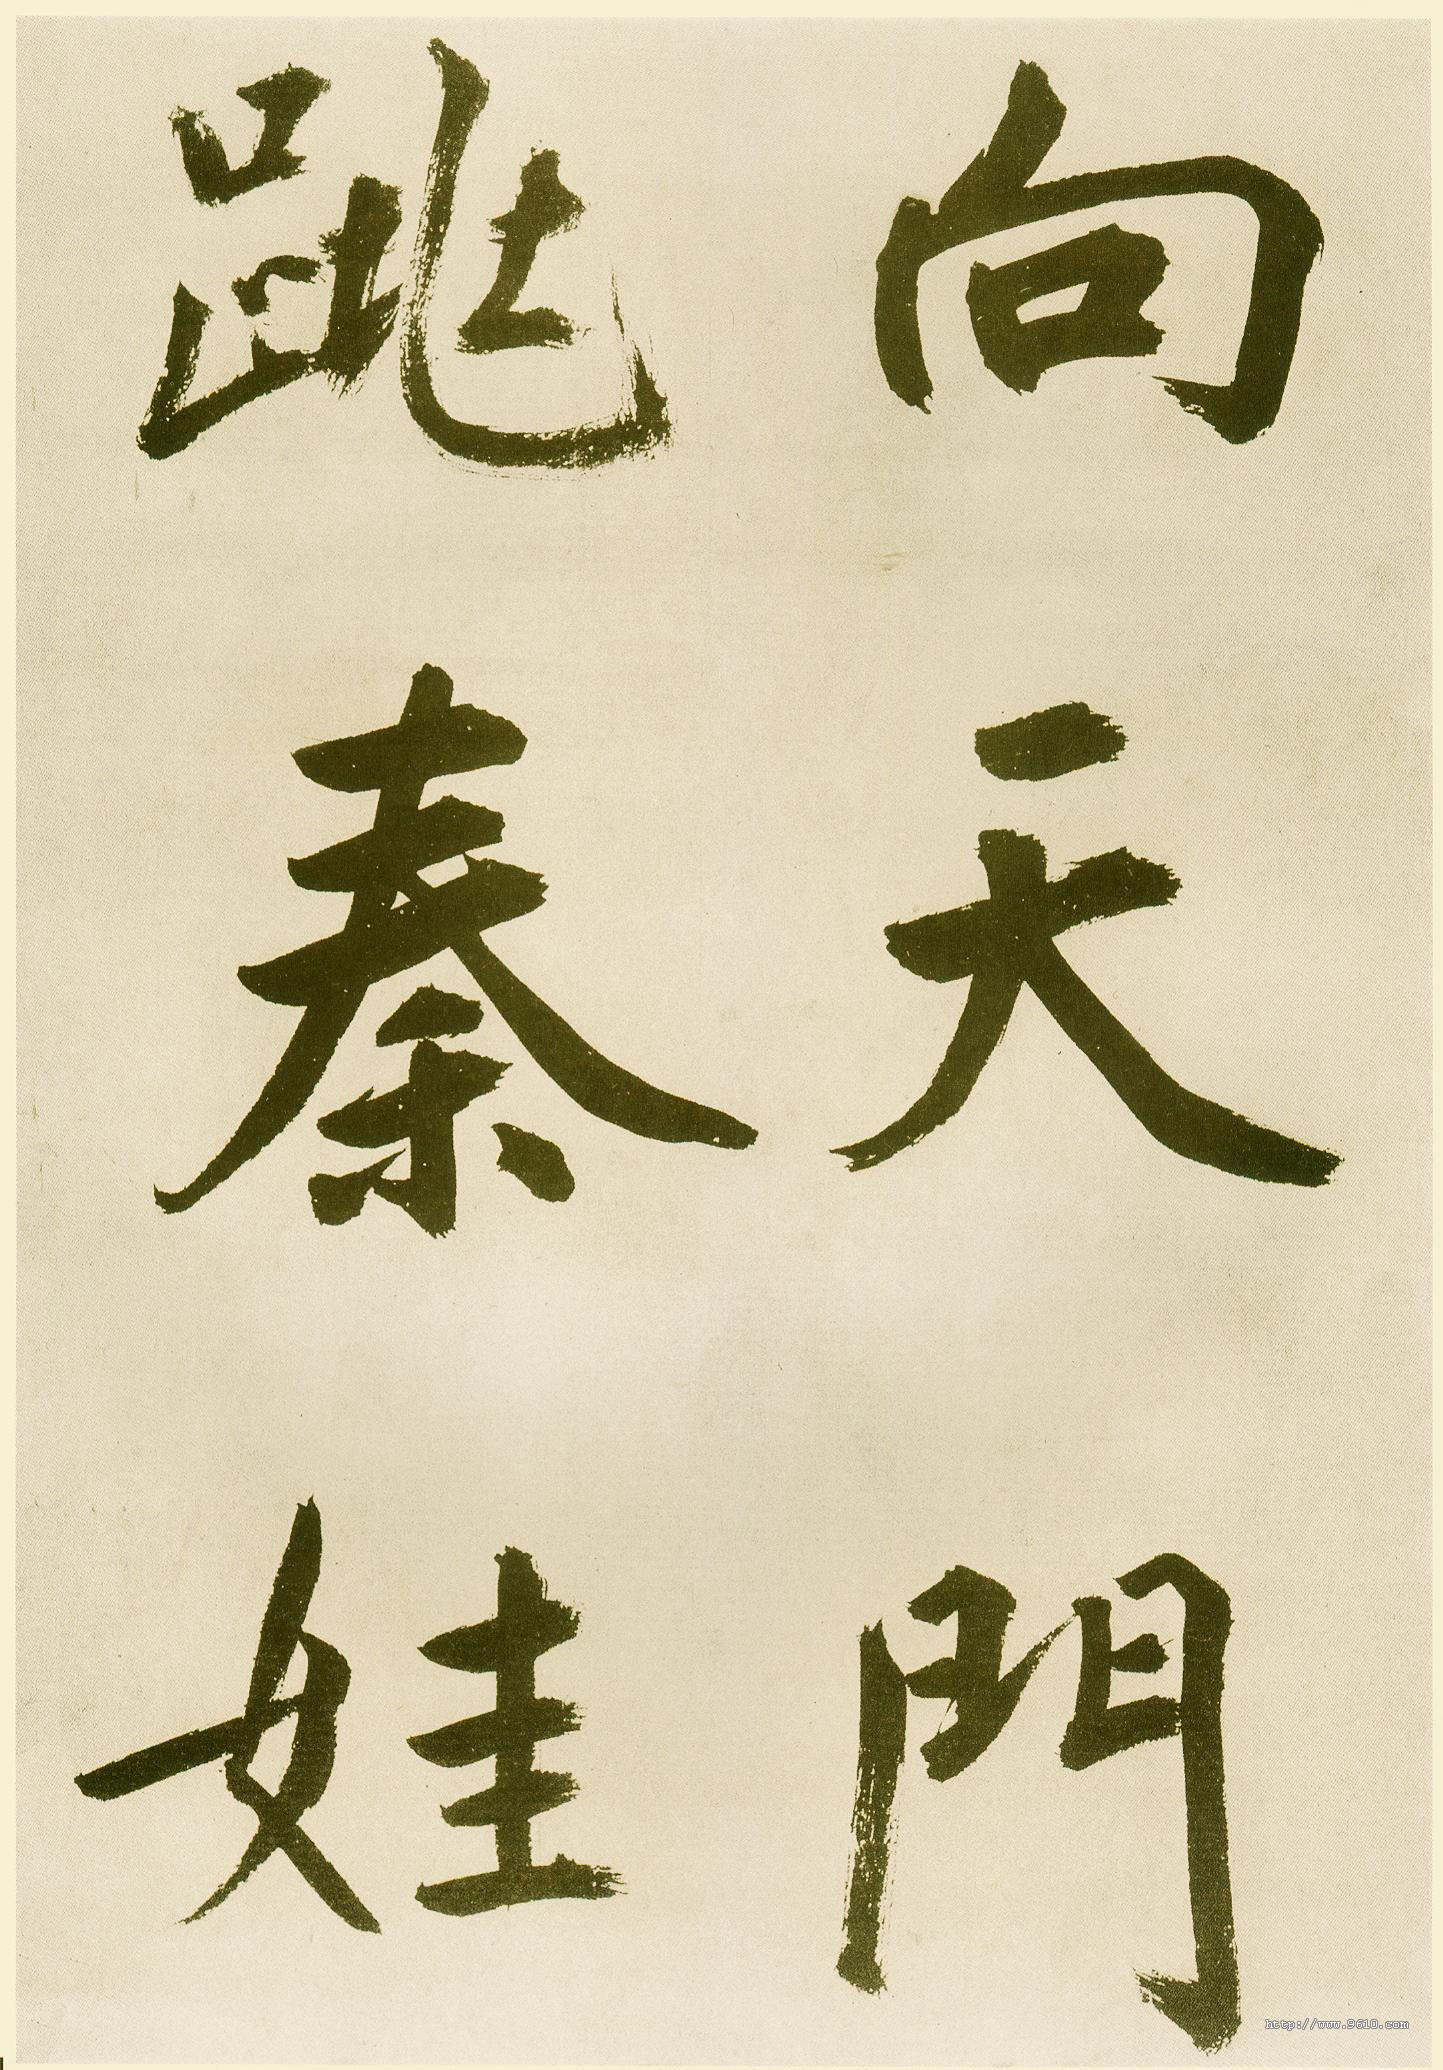 向天門
跳秦娃
http://www.9610.com